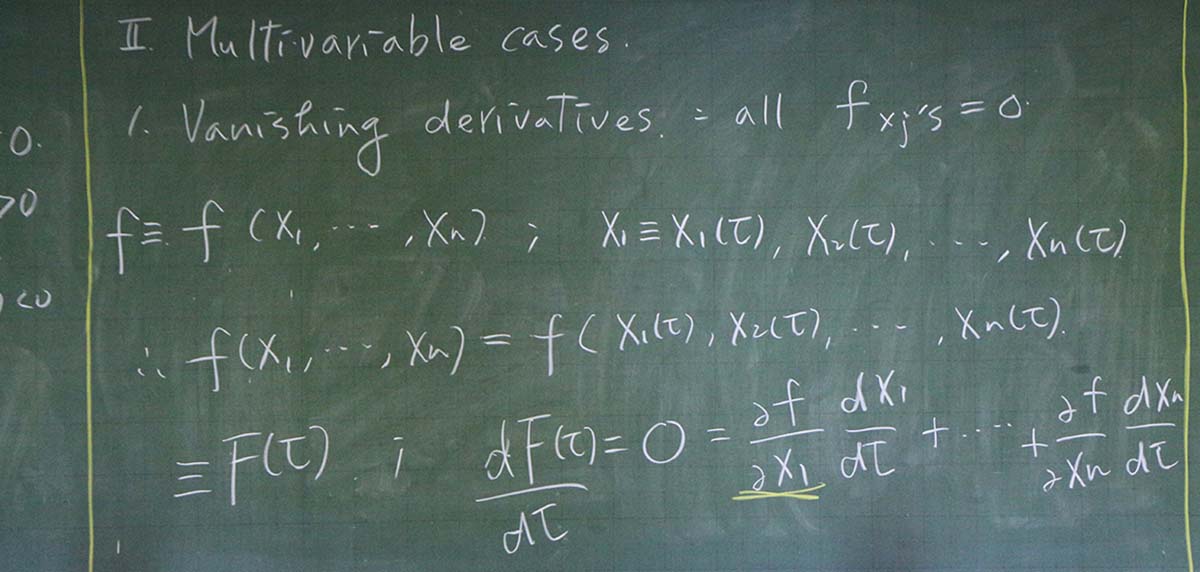 II. Multivariable cases.
1. Vanishing derivatives. : all f_{xj}'s = 0.
f ≡ f (x₁, ⋯, xₙ) ; x₁ ≡ x₁(τ), x₂(τ), ⋯, xₙ(τ)
∴ f(x₁, ⋯, xₙ) = f( x₁(τ), x₂(τ), ⋯, xₙ(τ).
≡ F(τ) ; dF(τ)/dτ = 0 = ∂f/∂x₁ dx₁/dτ + ⋯ + ∂f/∂xₙ dxₙ/dτ
0.
>0
<0